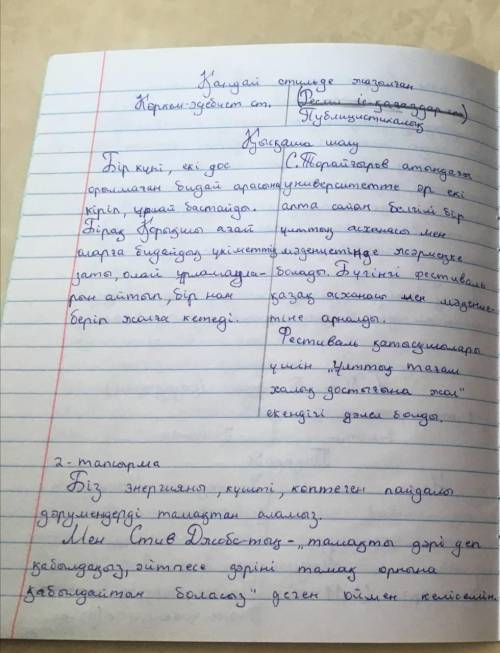 Қандай стильде жазылған
Көркем-әдебиет ст. (Ресми іс-қағаздар
Публицистикалық
Қысқаша шолу
Бір күні, екі дос С.Торайғыров атындағы
орылмаған бидай арасына университетте әр екі
кіріп, ұрлай бастайды. апта сайын белгілі бір
Бірақ Қорықшы ағай ұлттың асханасы мен
оларға бидайдың үкіметтің мәдениетінде жәрмеңке
заты, олай ұрламаңда- болады. Бүгінгі фестиваль
рын айтып, бір нан қазақ асханасы мен мәдение-
беріп жолға кетеді. тіне арналды.
Фестиваль қатысушылары
үшін "Ұлттық тағам
халық достығына жол"
екендігі дәлел болды.
2-тапсырма
Біз энергияны, күшті, көптеген пайдалы
дәрумендерді тамақтан аламыз.
Мен Стив Джобс-тың-"тамақты дәрі деп
қабылдаңыз, әйтпесе дәріні тамақ орнына
қабылдайтын боласыз" деген оймен келісемін.